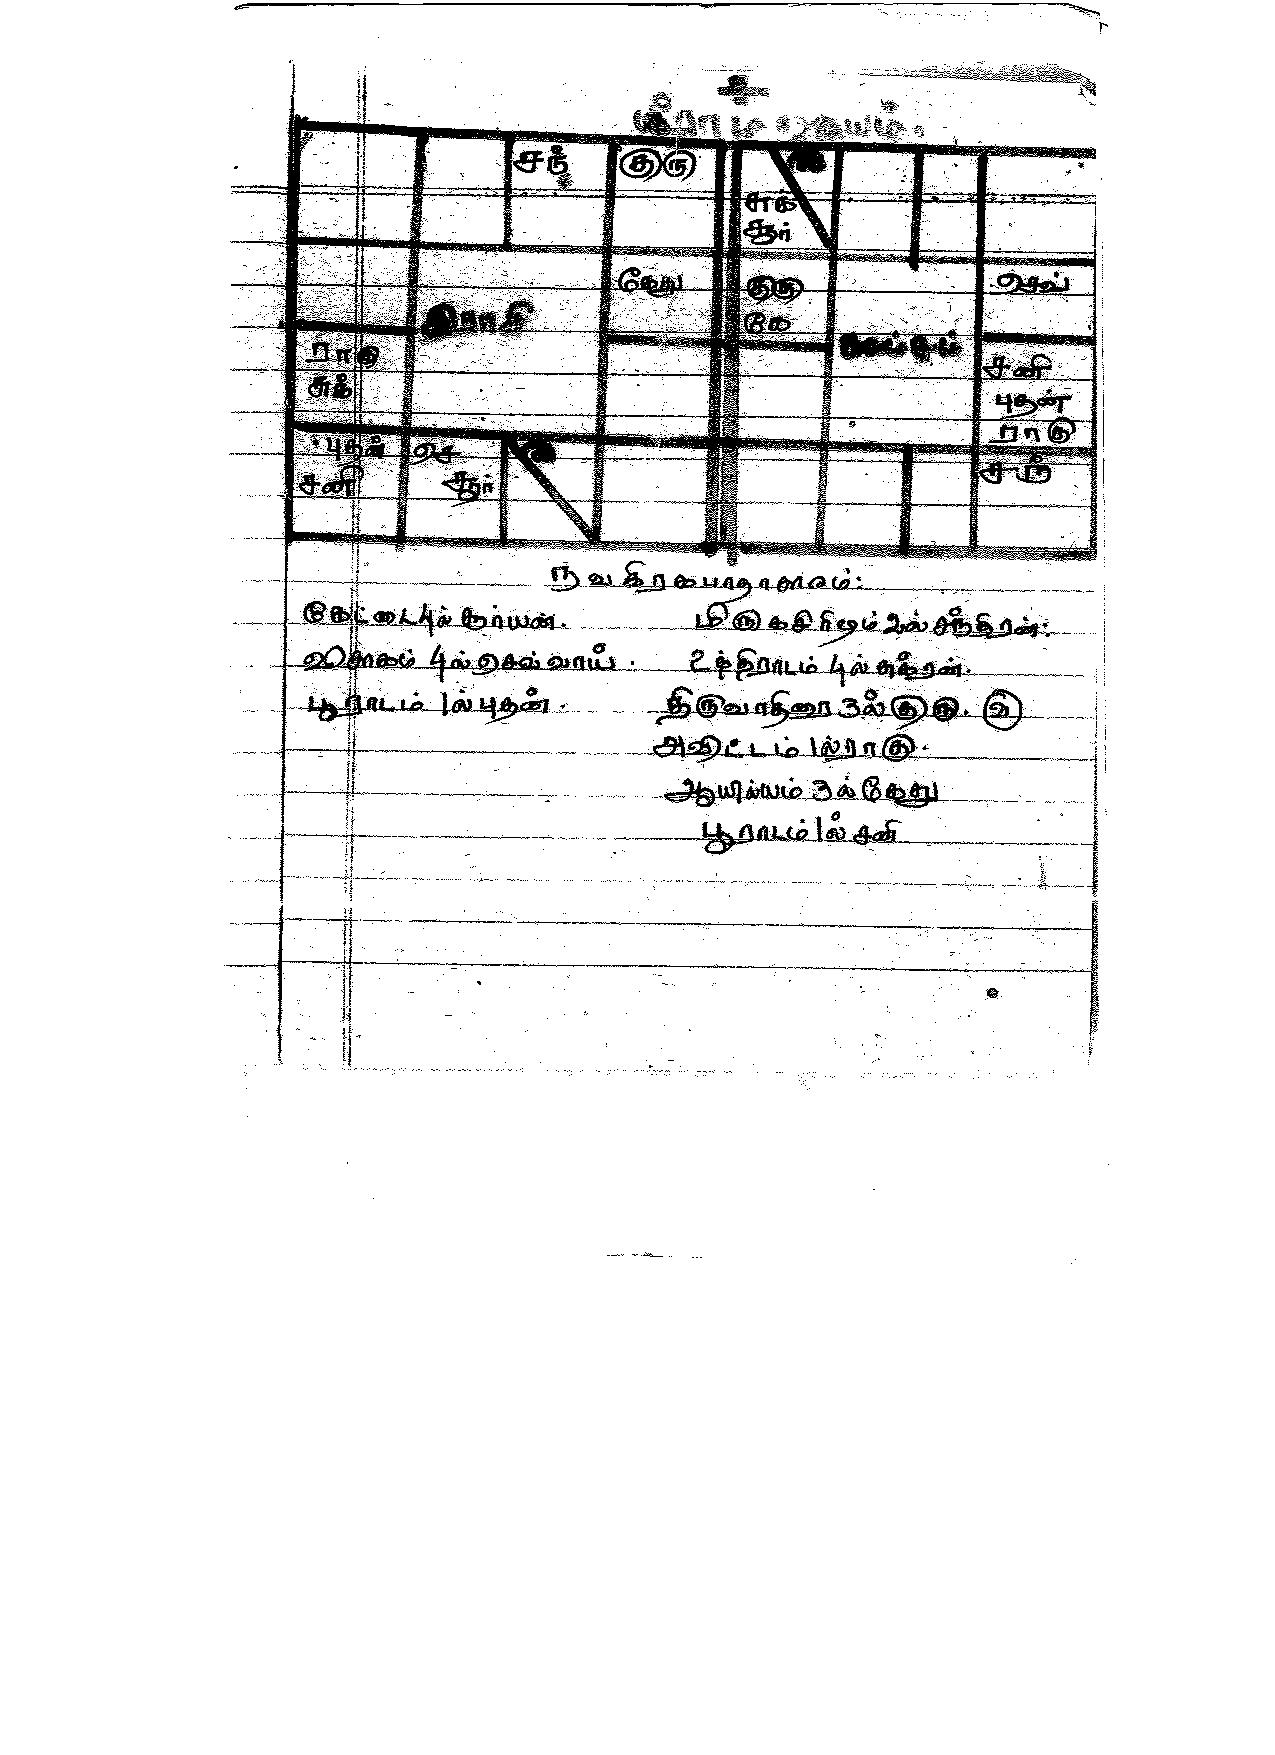 சந் குரு
சுக்
சூர்
கேது குரு செவ்
இராசி
கே
ராகு சனி
சுக் புதன்
ராகு
புதன் செ
சனி சூர்
நவகிரகபாதாசாரம்:
கேட்டை 4ல் சூர்யன். மிருகசிரிஷம் 2ல் சந்திரன்:
விசாகம் 4ல் செவ்வாய். உத்திராடம் 4ல் சுக்ரன்.
பூராடம் 1ல் புதன். திருவாதிரை 3ல் குரு. வ
அவிட்டம் 1ல் ராகு.
ஆயில்யம் 3ல் கேது
பூராடம் 1ல் சனி